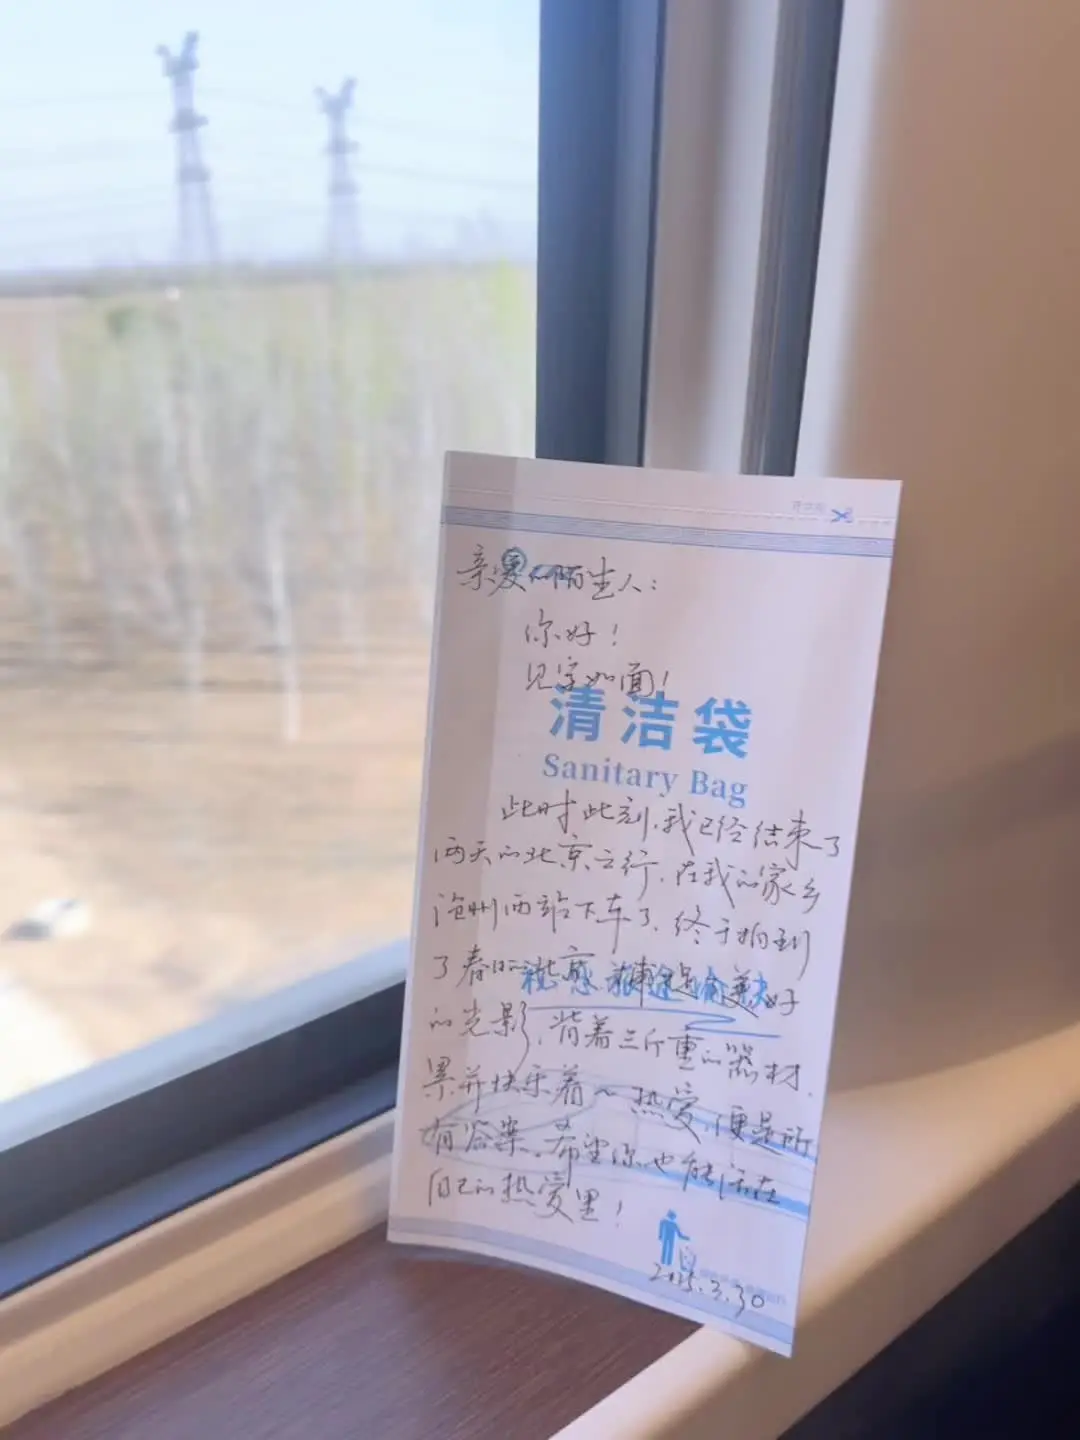 亲爱的陌生人：
你好！
见字如面！
清洁袋
Sanitary Bag
此时此刻，我已经结束了
两天的北京之行，在我的家乡
沧州西站下车了，终于拍到
了春日的北京
祝您旅途愉快
美好
的光影，背着三斤重的器材，
累并快乐着～热爱，便是所
有答案，希望你也能活在
自己的热爱里！
2025.3.30